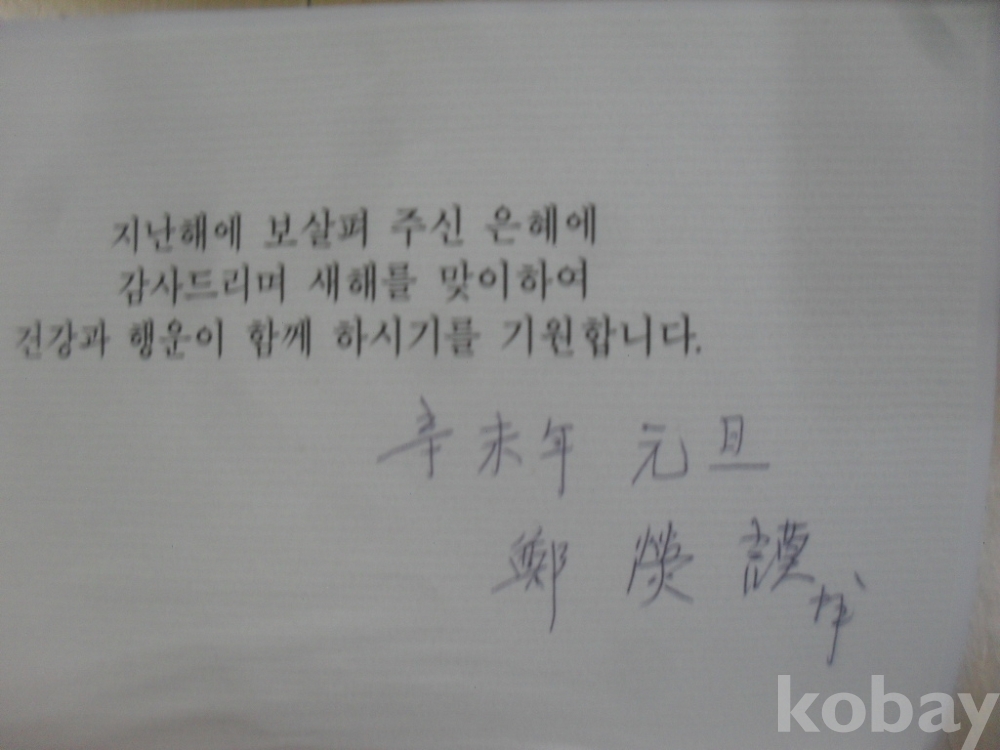 지난해에 보살펴 주신 은혜에
감사드리며 새해를 맞이하여
건강과 행운이 함께 하시기를 기원합니다.
辛未年 元旦
鄭
kobay